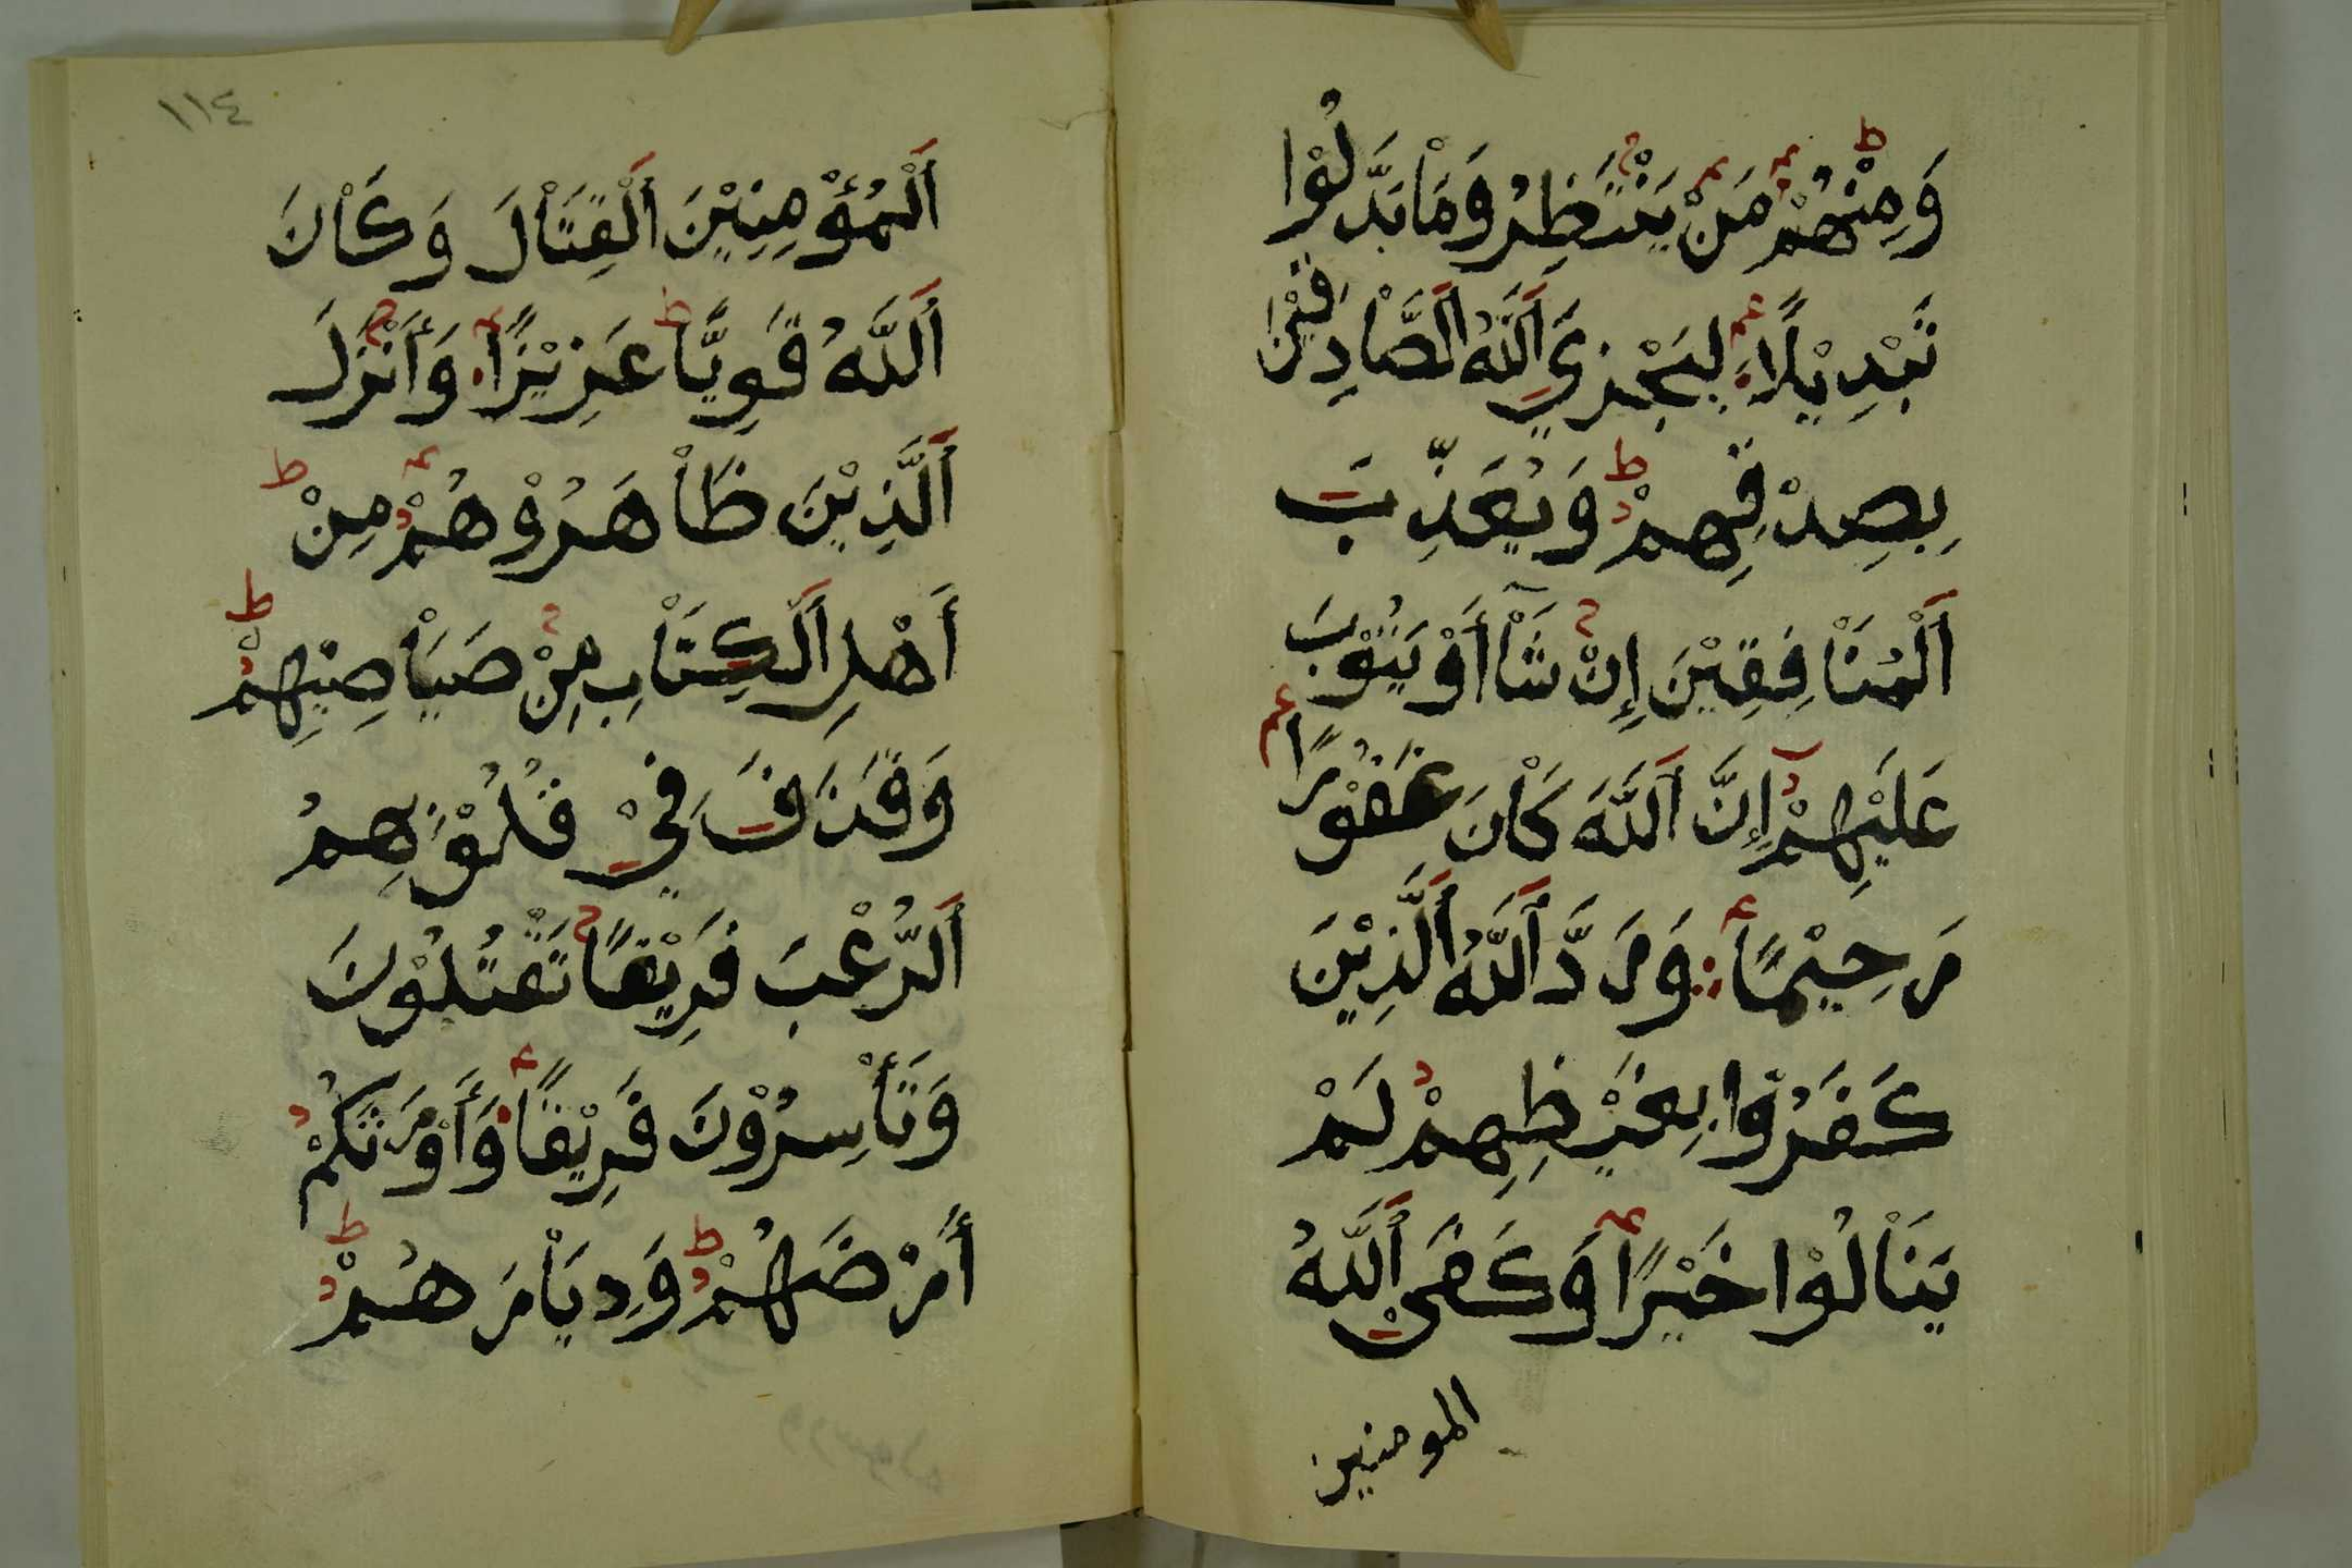 وَمِنْهُمْ مَنْ يَنْتَظِرُ وَمَاْ بَدَّلُوْا
تَبْدِيْلًا لِيَجْزِيَ اَللَّهُ اَلصَّاْدِقِيْنَ
بِصِدْقِهِمْ وَيُعَذِّبَ
اَلْمُنَاْفِقِيْنَ إِنْ شَآْ أَوْ يَتُوْبَ
عَلَيْهِمْ إِنَّ اَللَّهَ كَاْنَ غَفُوْرًا
رَحِيْمًا وَرَدَّ اَللَّهُ اَلَّذِيْنَ
كَفَرُوْا بِغَيْظِهِمْ لَمْ
يَنَاْلُوْا خَيْرًا وَكَفَىْ اَللَّهُ
المومنين
١١٤
اَلْمُؤْمِنِيْنَ اَلْقِتَاْلَ وَكَاْنَ
اَللَّهُ قَوِيًّا عَزِيْزًا وَأَنْزَلَ
اَلَّذِيْنَ ظَاْهَرُوْهُمْ مِنْ
أَهْلِ اَلْكِتَاْبِ مِنْ صَيَاْصِيْهِمْ
وَقَذَفَ فِيْ قُلُوْبِهِمُ
اَلرُّعْبَ فَرِيْقًا تَقْتُلُوْنَ
وَتَأْسِرُوْنَ فَرِيْقًا وَأَوْرَثَكُمْ
أَرْضَهُمْ وَدِيَاْرَهُمْ